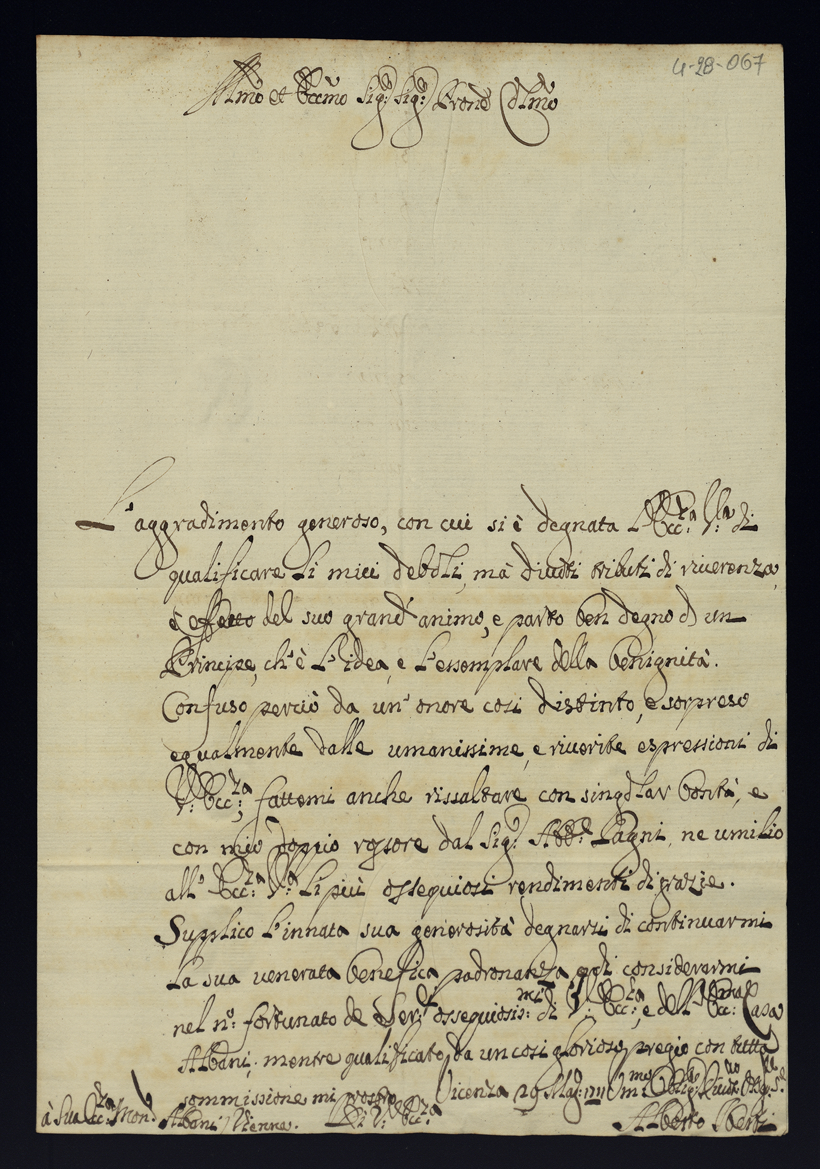 4-28-067
Illmo et Eccmo Sig.r Sig.r Prone Colmo
L'aggradimento generoso, con cui si è degnata L'Ecc.za V.ra di
qualificare li miei deboli, mà divoti tributi di riverenza,
è effetto del suo grand'animo, e parto ben degno d'un
Principe, ch'è L'idea, e L'essemplare della benignità.
Confuso perciò da un'onore così distinto, e sorpreso
egualmente dalle umanissime, e riverite espressioni di
V: Ecc:za, fattemi anche rissaltare con singolar bontà, e
con mio doppio rossore dal Sig.r Abb.e Pagni, ne umilio
all'Ecc:za V:ra li più ossequiosi rendimenti di grazie.
Supplico L'innata sua generosità degnarsi di continuarmi
La sua venerata benefica padronanza, e di considerarmi
nel n.o fortunato de Ser.ri ossequiosis:mi di V: Ecc:za, e dell'Ecc:ma Casa
Albani; mentre qualificato da un così glorioso pregio con tutta
sommissione mi prostro Vicenza 29 Mag:
Di V: Ecc:za
à Sua Ecc:za Mon.r Albani Vienna.
Alberto